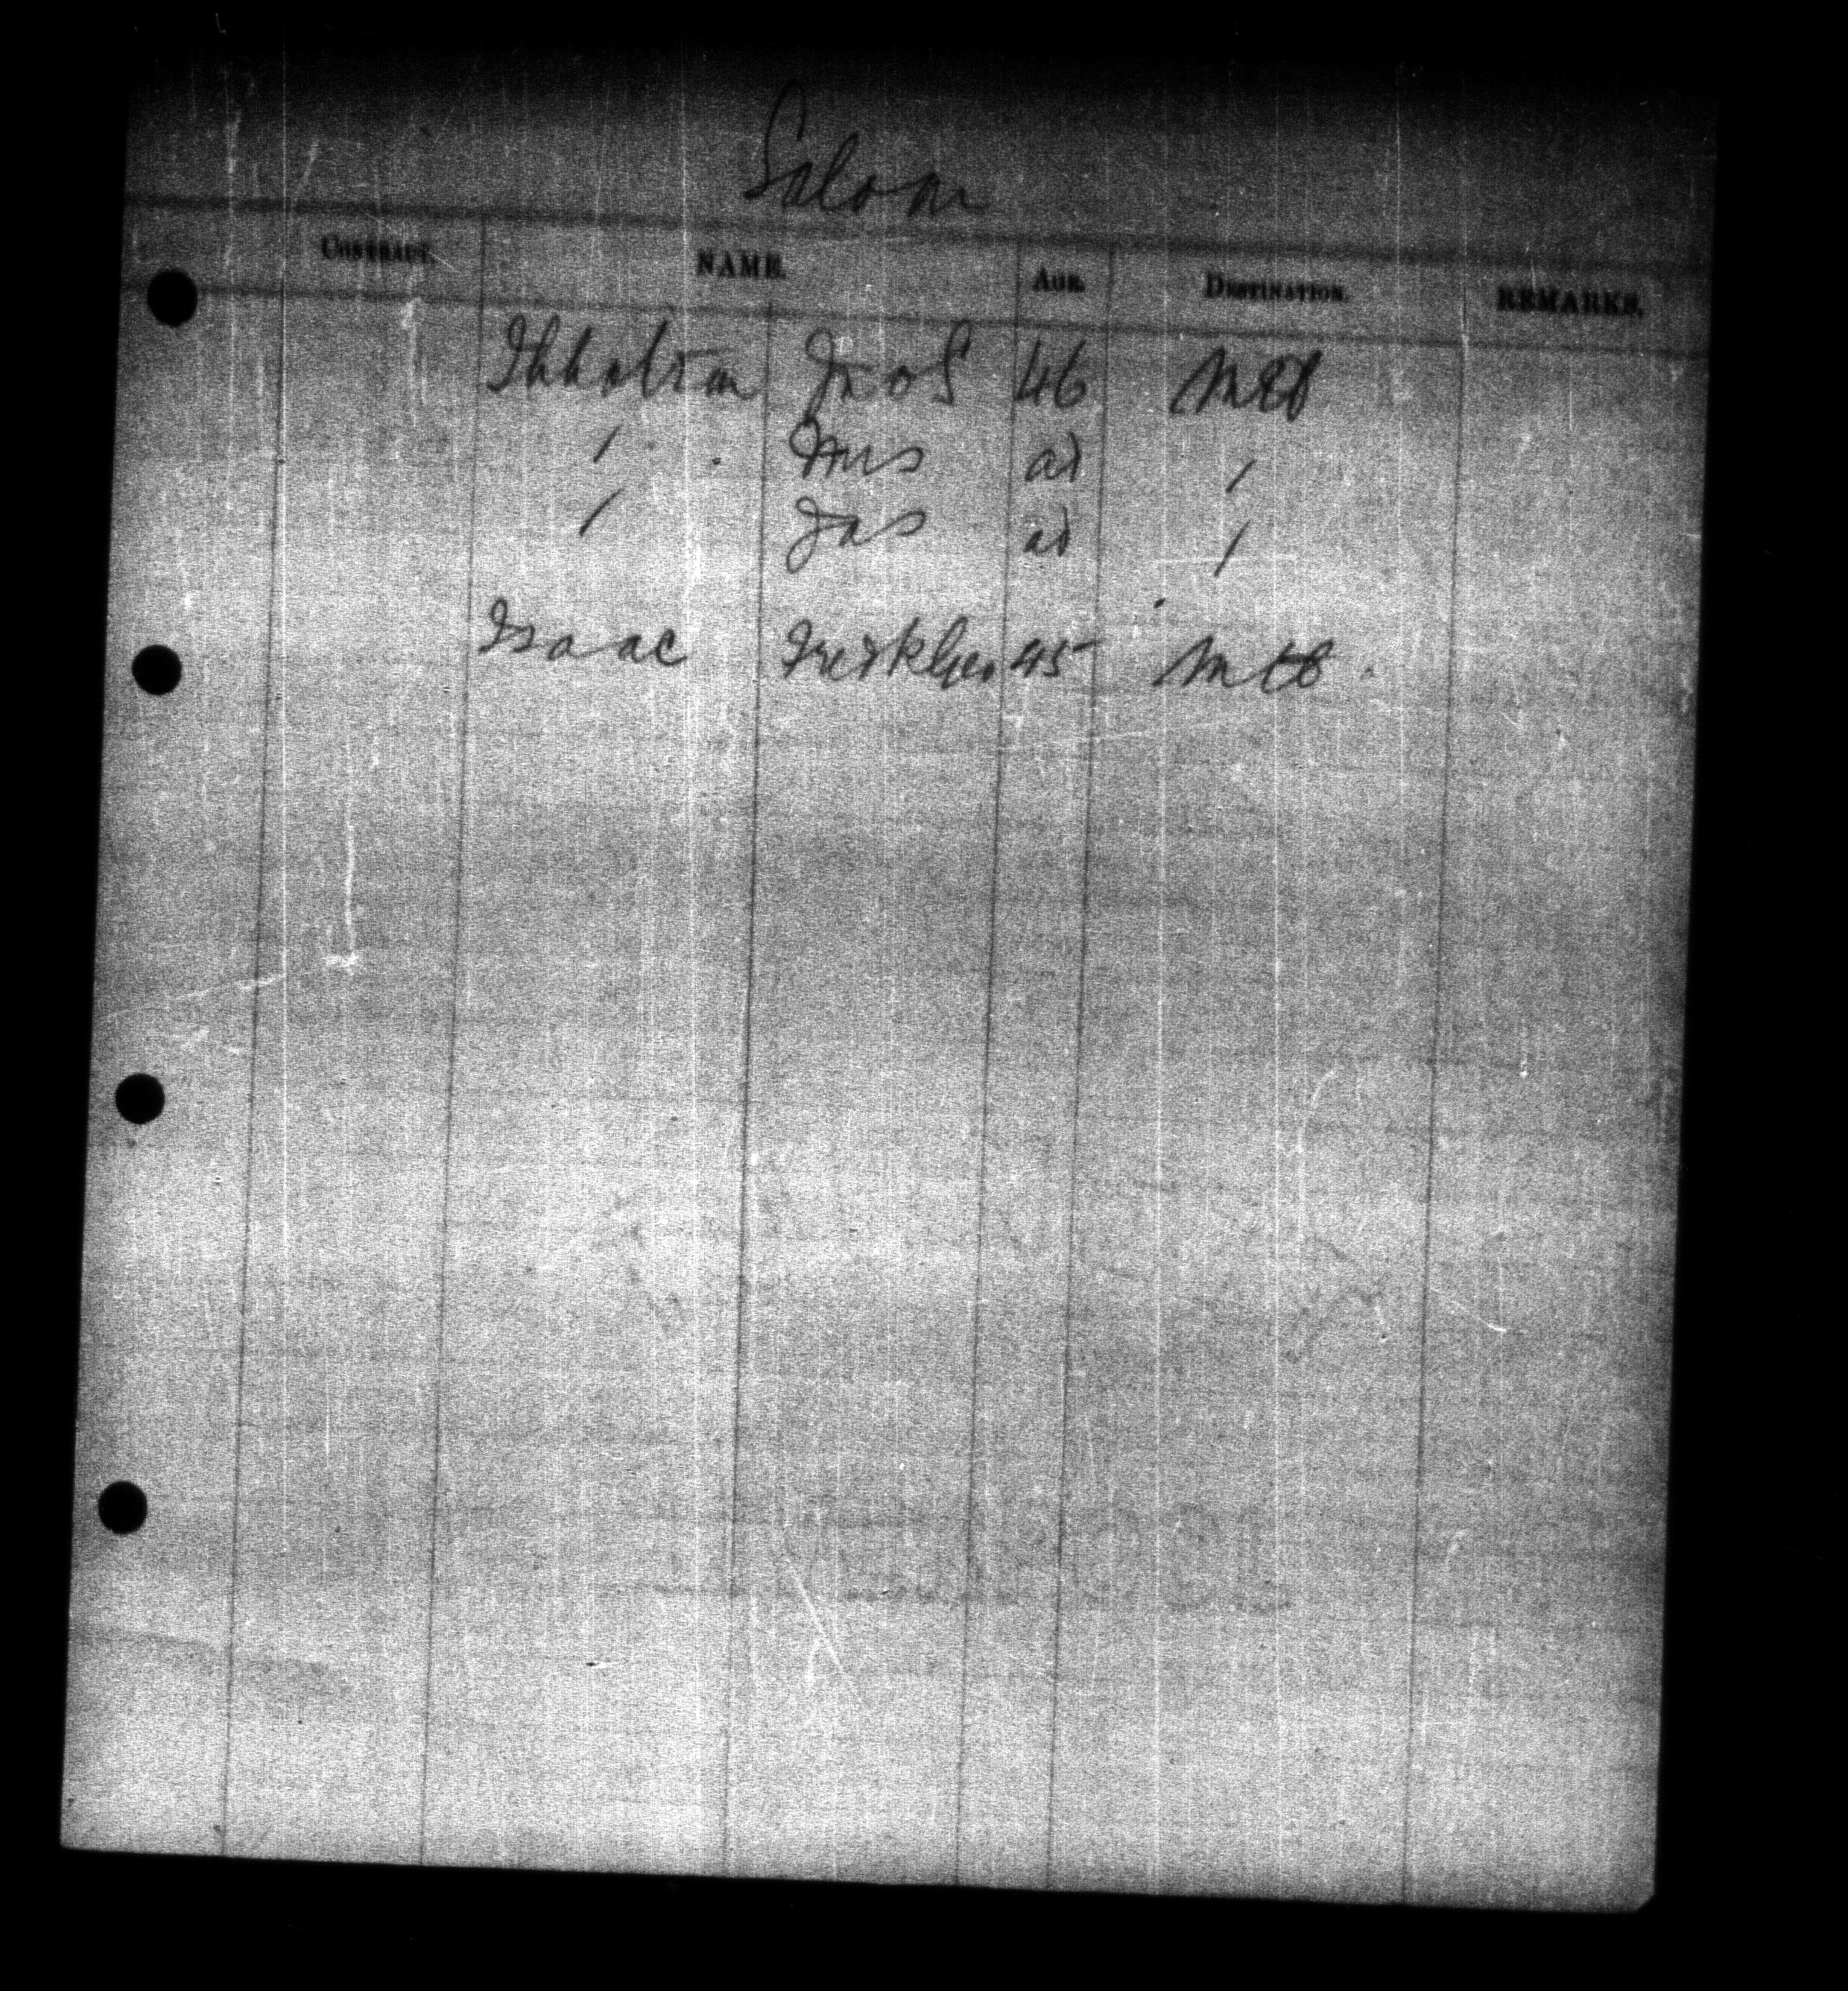 Saloon
CONTRACT. NAME. AGE. DESTINATION. REMARKS.
Ibbotson Jno S 46 Mtl
/ Mrs ad /
/ Jas ad /
Isaac 45 Mtl